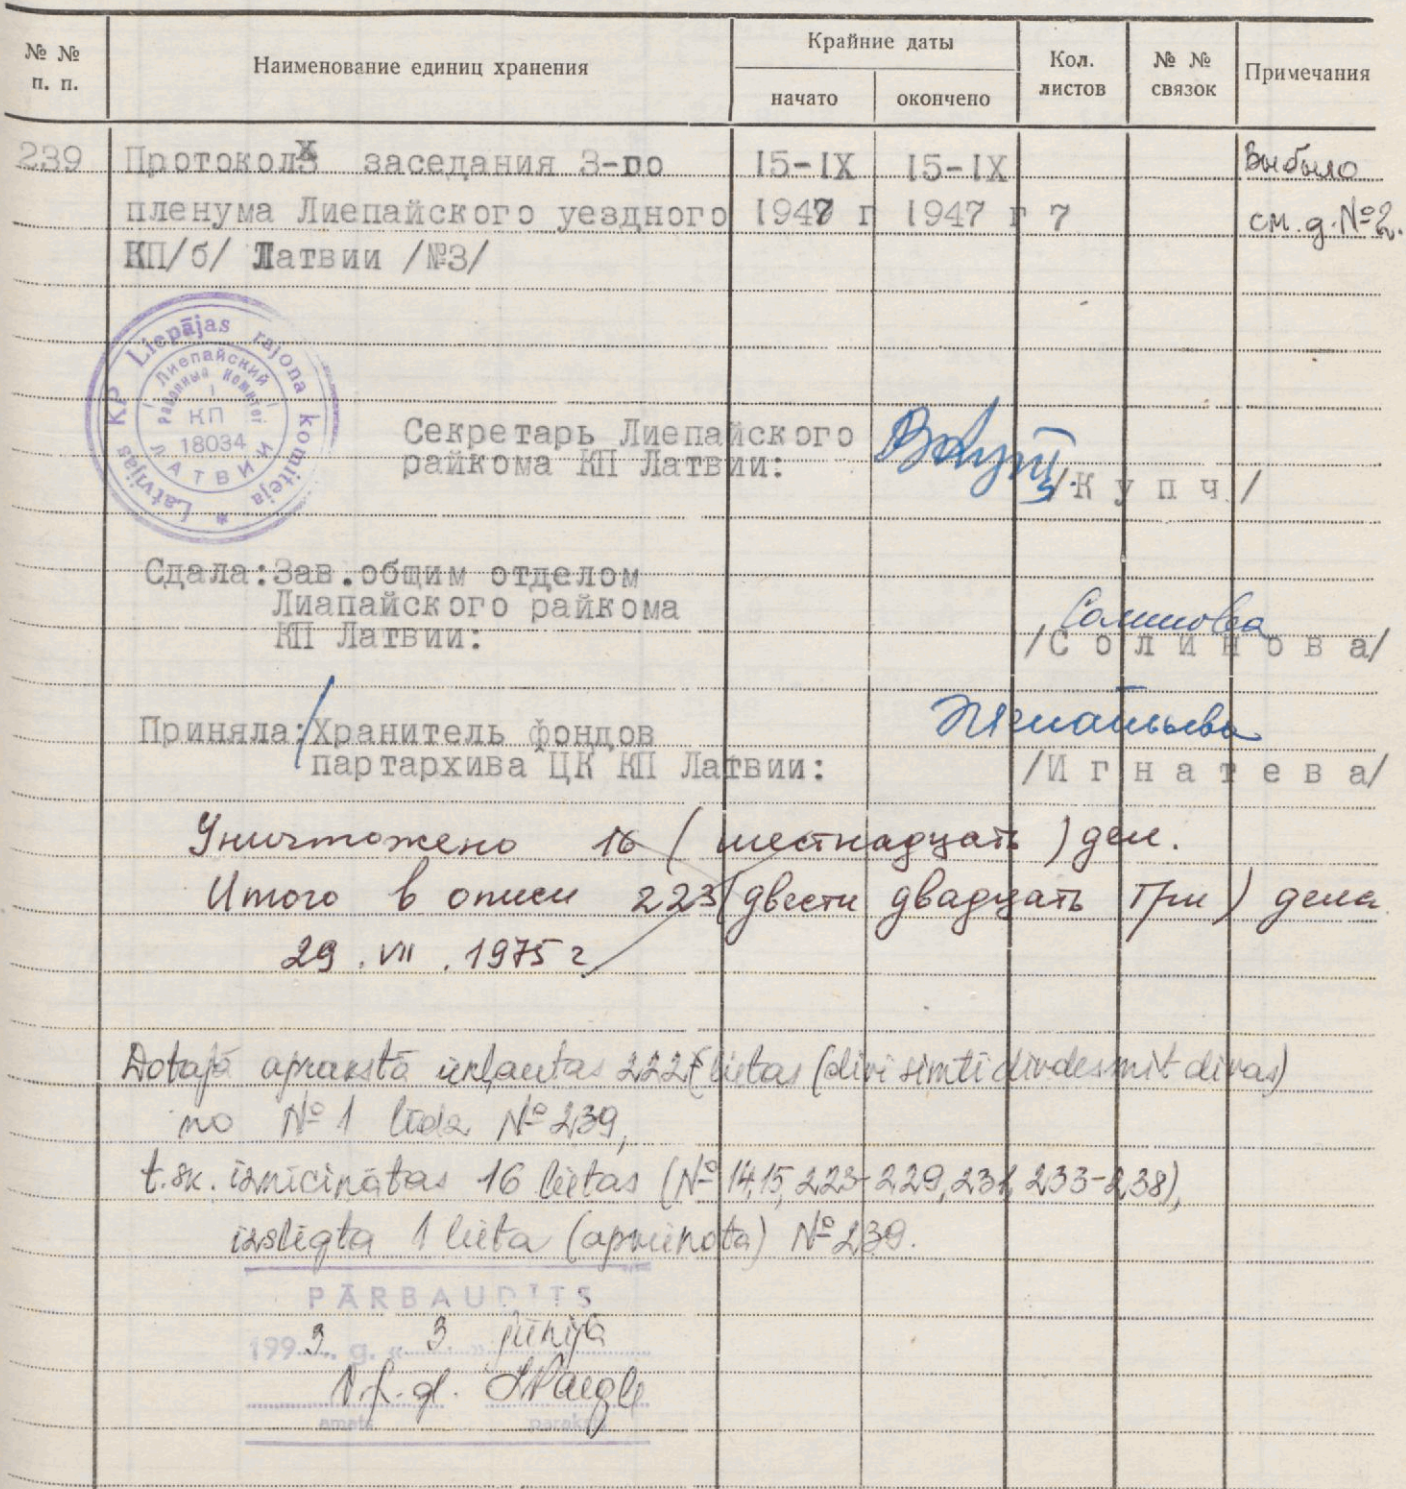 № № п. п. Наименование единиц хранения Крайние даты начато окончено Кол. листов № № связок Примечания
239 Протокол заседания 3-го 15-IX 15-IX Выбыло
пленума Лиепайского уездного 1947 г 1947 г 7 см. д. №2.
КП/б/ Латвии /№3/
Latvijas KP Liepājas rajona komiteja
Лиепайский районный комитет
КП
18034
ЛАТВИИ
Секретарь Лиепайского
райкома КП Латвии: /К у п ч /
Сдала: Зав.общим отделом
Лиапайского райкома Солинова
КП Латвии: /С о л и н о в а/
Приняла: Хранитель фондов Игнатьева
партархива ЦК КП Латвии: /И г н а т е в а/
Уничтожено 16 ( шестнадцать ) дел.
Итого в описи 223 (двести двадцать три) дела
29. VII. 1975 г
Dotajā aprakstā iekļautas 222 lietas (divi simti divdesmit divas)
no № 1 līdz № 239,
t.sk. iznīcinātas 16 lietas (№ 14,15, 223-229, 231, 233-238),
izslēgta 1 lieta (apvienota) № 239.
PĀRBAUDĪTS
1993. g. « 3. » jūnijā
amats paraksts